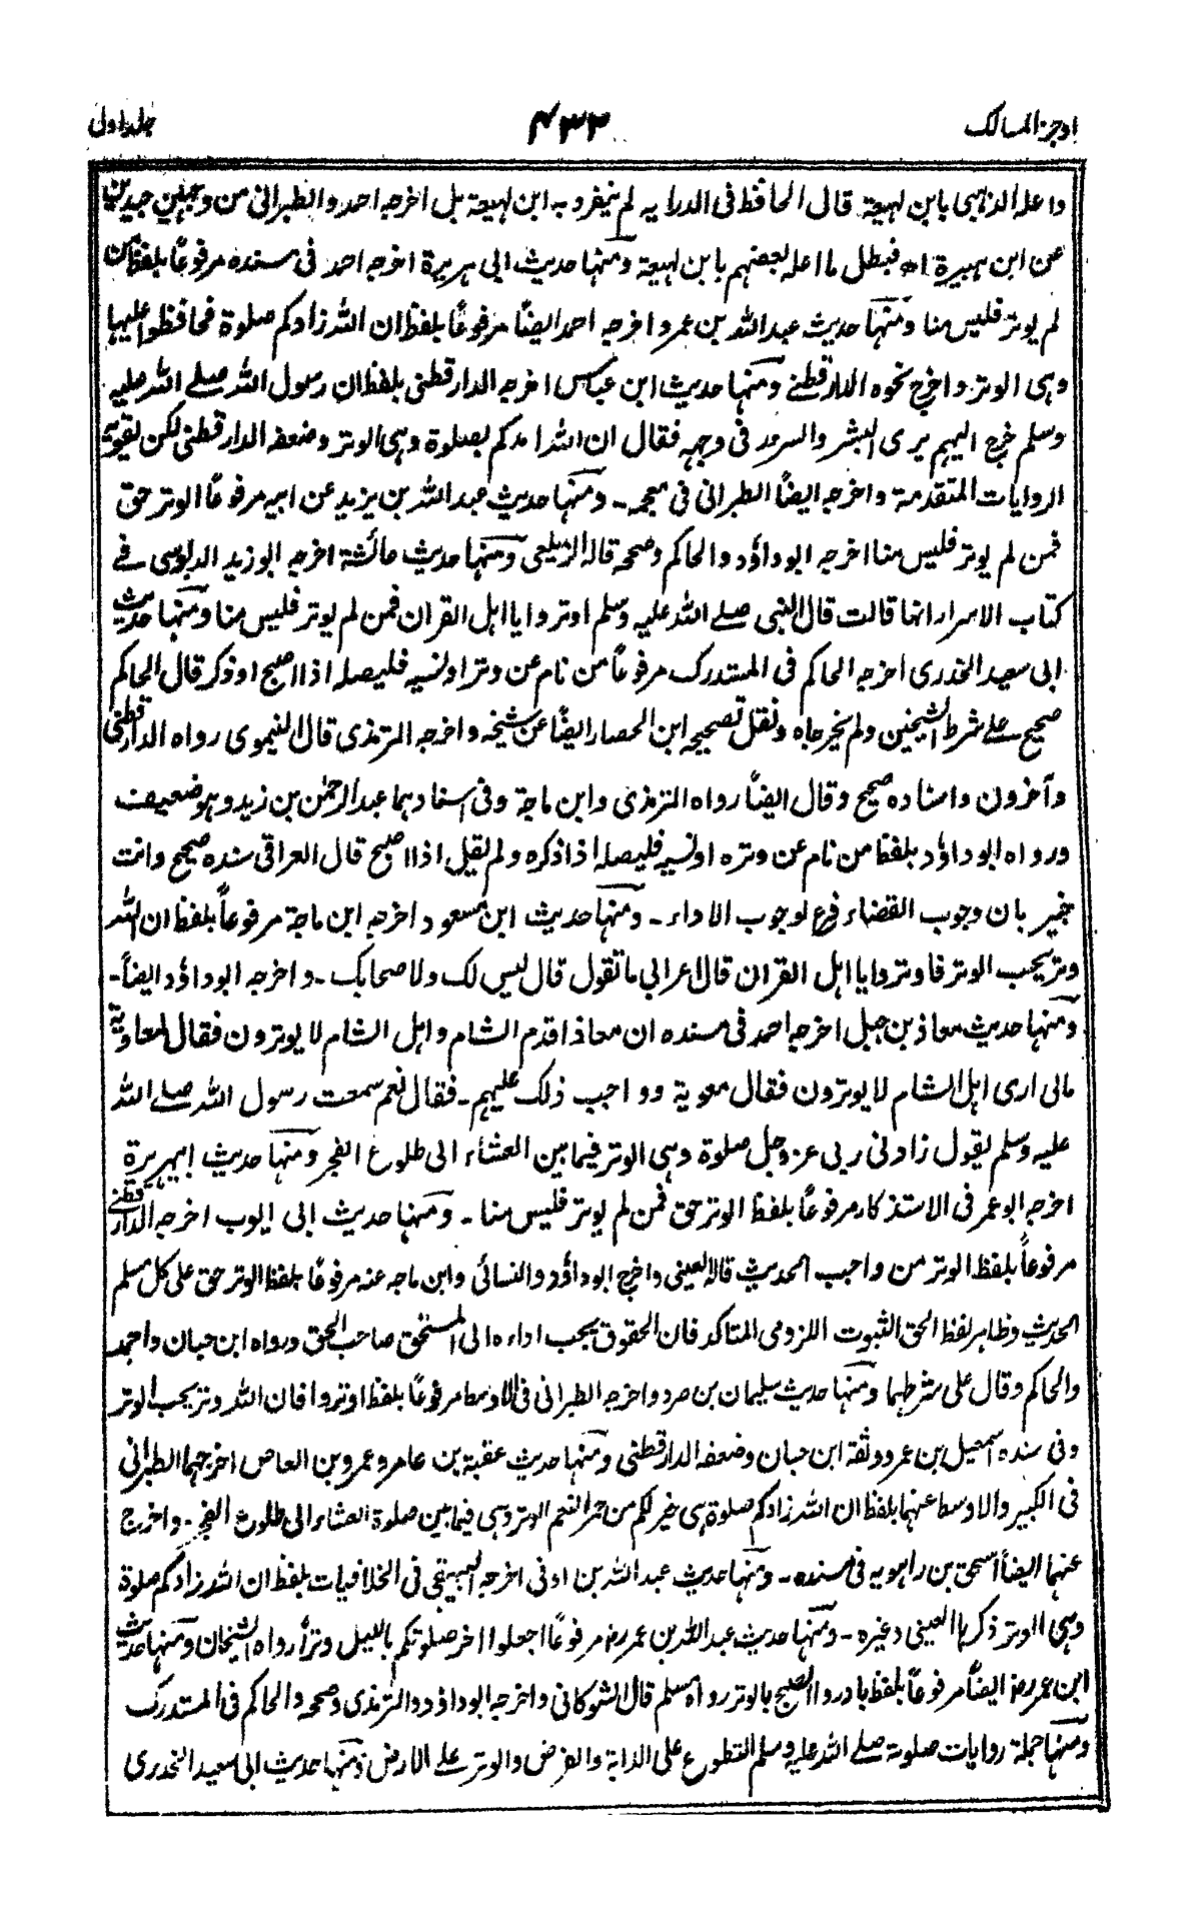 اوجز المسالك
۴۳۲
جلد اول
واعله الذهبى بابن لهيعة قال الحافظ فى الدراية لم ينفرد به ابن لهيعة بل اخرجه احمد والطبرانى من وجهين جيدين
عن ابن هبيرة اه فبطل ما اعله بعضهم بابن لهيعة ومنها حديث ابى هريرة اخرجه احمد فى مسنده مرفوعاً بلفظ من
لم يوتر فليس منا ومنها حديث عبدالله بن عمرو اخرجه احمد ايضاً مرفوعاً بلفظ ان الله زادكم صلوة فحافظوا عليها
وهى الوتر واخرج نحوه الدارقطنے ومنها حديث ابن عباس اخرجه الدارقطنى بلفظ ان رسول الله صلے الله عليه
وسلم خرج اليهم يرى البشر والسرور فى وجهه فقال ان الله امدكم بصلوة وهى الوتر وضعفه الدارقطنى لكن تقويه
الروايات المتقدمة واخرجه ايضاً الطبرانى فى معجمه ۔ ومنها حديث عبدالله بن يزيد عن ابيه مرفوعاً الوتر حق
فمن لم يوتر فليس منا اخرجه ابوداؤد والحاكم وصححه قاله الزيلعى ومنها حديث عائشة اخرجه ابوزيد الدبوسى فے
كتاب الاسرار انها قالت قال النبى صلے الله عليه وسلم اوتروا يا اهل القران فمن لم يوتر فليس منا ومنها حديث
ابى سعيد الخدرى اخرجه الحاكم فى المستدرك مرفوعاً من نام عن وتر او نسيه فليصله اذا اصبح او ذكر قال الحاكم
صحيح علے شرط الشيخين ولم يخرجاه ونقل تصحيحه ابن الحصار ايضاً عن شيخه واخرجه الترمذى قال النيموى رواه الدارقطنى
وآخرون واسناده صحيح وقال ايضاً رواه الترمذى وابن ماجة وفى اسنادهما عبدالرحمٰن بن زيد وهو ضعيف
ورواه ابوداؤد بلفظ من نام عن وتره او نسيه فليصله اذا ذكره ولم يقل اذا اصبح قال العراقى سنده صحيح وانت
خبير بان وجوب القضاء فرع لوجوب الاداء ۔ ومنها حديث ابن مسعود اخرجه ابن ماجة مرفوعاً بلفظ ان الله
وتر يحب الوتر فاوتروا يا اهل القران قال اعرابى ما تقول قال ليس لك ولا صحابك ۔ واخرجه ابوداؤد ايضاً ۔
ومنها حديث معاذ بن جبل اخرجه احمد فى مسنده ان معاذا قدم الشام واهل الشام لا يوترون فقال لمعاوية
مالى ارى اهل الشام لا يوترون فقال معوية وواجب ذلك عليهم ۔ فقال نعم سمعت رسول الله صلے الله
عليه وسلم يقول زادنى ربى عزوجل صلوة وهى الوتر فيما بين العشاء الى طلوع الفجر ومنها حديث ابيهريرة
اخرجه ابو عمر فى الاستذكار مرفوعاً بلفظ الوتر حق فمن لم يوتر فليس منا ۔ ومنها حديث ابى ايوب اخرجه الدارقطنے
مرفوعاً بلفظ الوتر من واجب الحديث قاله العينى واخرج ابوداؤد والنسائى وابن ماجه عنه مرفوعاً بلفظ الوتر حق على كل مسلم
الحديث وظاهر لفظ الحق الثبوت اللزومى المتاكد فان الحقوق يجب اداءه الى المستحق صاحب الحق ورواه ابن حبان واحمد
والحاكم وقال على شرطهما ومنها حديث سليمان بن صرد واخرجه الطبرانى فى الاوسط مرفوعاً بلفظ اوتروا فان الله وتر يحب الوتر
وفى سنده اسمعيل بن عمرو وثقه ابن حبان وضعفه الدارقطنى ومنها حديث عقبة بن عامر وعمرو بن العاص اخرجهما الطبرانى
فى الكبير والاوسط عنهما بلفظ ان الله زادكم صلوة هى خير لكم من حمر النعم الوتر وهى فيما بين صلوة العشاء الى طلوع الفجر ۔ واخرج
عنهما ايضاً اسحق بن راهويه فى مسنده ۔ ومنها حديث عبدالله بن اوفى اخرجه البيهقى فى الخلافيات بلفظ ان الله زادكم صلوة
وهى الوتر ذكرها العينى وغيره ۔ ومنها حديث عبدالله بن عمر رض مرفوعاً اجعلوا اخر صلوتكم بالليل وترا رواه الشيخان ومنها حديث
ابن عمر رض ايضاً مرفوعاً بلفظ بادروا الصبح بالوتر رواه مسلم قال الشوكانى واخرجه ابوداؤد والترمذى وصححه والحاكم فى المستدرك
ومنها جملة روايات صلوته صلے الله عليه وسلم التطوع على الدابة والفرض والوتر علے الارض ومنها حديث ابى سعيد الخدرى